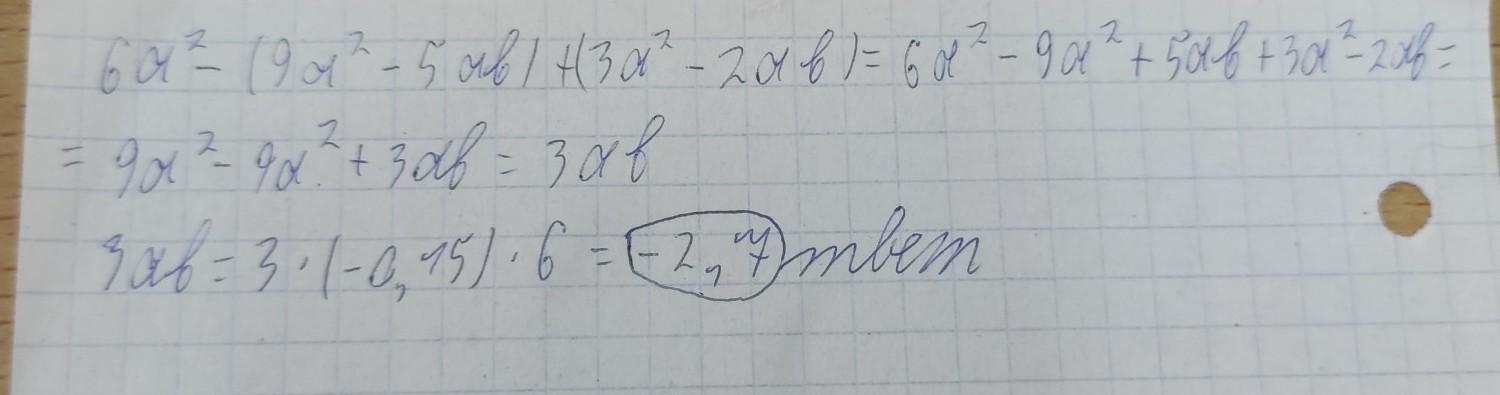 6a² - (9a² - 5ab) + (3a² - 2ab) = 6a² - 9a² + 5ab + 3a² - 2ab =
= 9a² - 9a² + 3ab = 3ab
3ab = 3 · (-0,15) · 6 = -2,7 Ответ